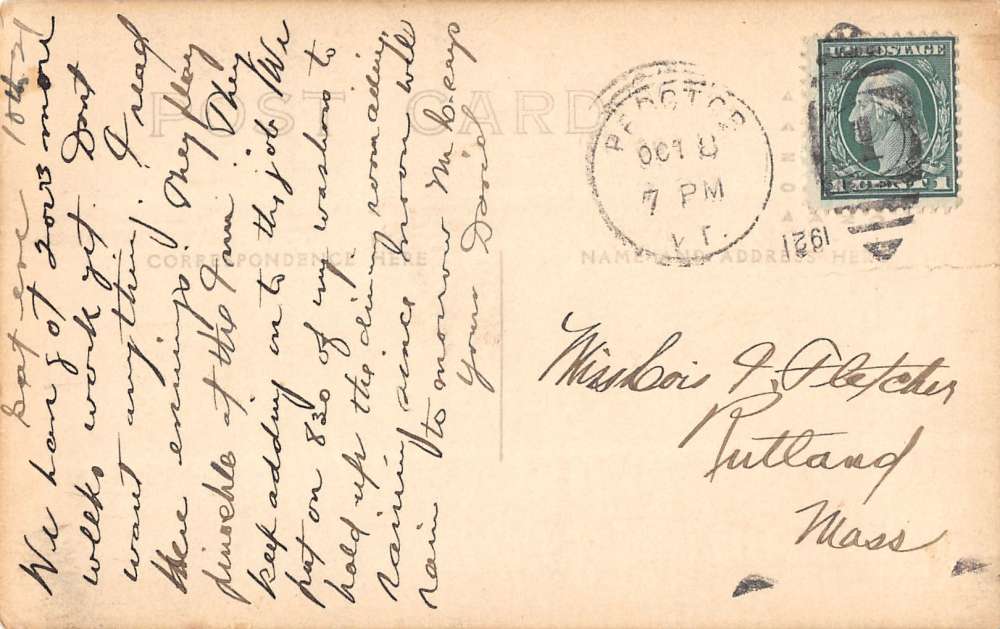 Sat eve 10th 21
We have got 2 or 3 more
weeks work yet. Dont
want anything. I read
these evenings. They play
pinochle at the Inn. They
keep adding on to this job. We
put on 830 of my washers to
hold up the dining room ceiling,
raining since noon will
rain to morrow Mr keeps
Yours David
POST CARD
CORRESPONDENCE HERE
NAME AND ADDRESS HERE
PROCTOR
OCT 8
7 PM
VT.
1921
U.S. POSTAGE
1 CENT 1
Miss Lois I. Fletcher
Rutland
Mass